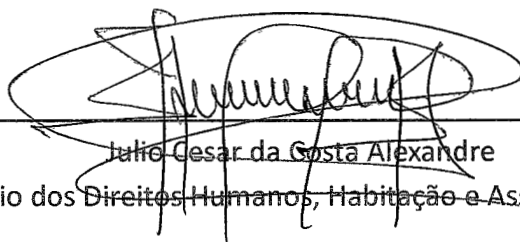 Julio Cesar da Costa Alexandre
io dos Direitos Humanos, Habitação e As